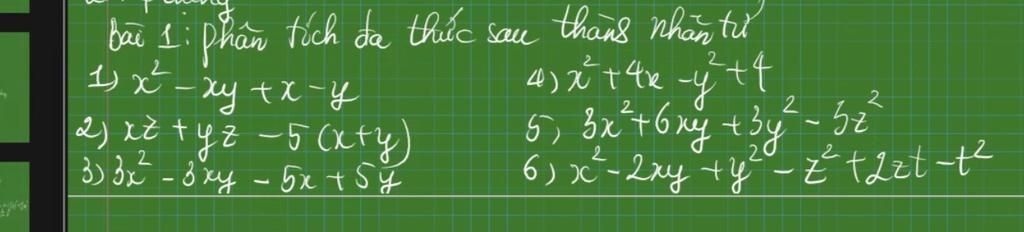 Bài 1: phân tích đa thức sau thành nhân tử
1) x² - xy + x - y
2) xz + yz - 5(x+y)
3) 3x² - 3xy - 5x + 5y
4) x² + 4x - y² + 4
5) 3x² + 6xy + 3y² - 3z²
6) x² - 2xy + y² - z² + 2zt - t²